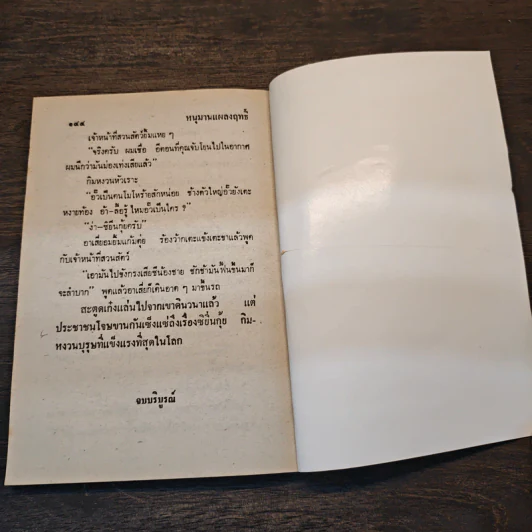 ๑๔๔ หนุมานแผลงฤทธิ์
เจ้าหน้าที่สวนสัตว์ยิ้มแหย ๆ
"จริงครับ ผมเชื่อ อีตอนที่คุณจับโยนไปในอากาศ
ผมนึกว่ามันม่องเท่งเสียแล้ว"
กิมหงวนหัวเราะ
"อั๊วเป็นคนโมโหร้ายสักหน่อย ช้างตัวใหญ่อั๊วยังเตะ
หงายท้อง อ้า-ลื้อรู้ไหมอั๊วเป็นใคร ?"
"ง่า-ซิยิ่นกุ้ยครับ"
อาเสี่ยอมยิ้มแก้มตุ่ย ร้องว้ากเตะแข้งเตะขาแล้วพูด
กับเจ้าหน้าที่สวนสัตว์
"เอามันไปขังกรงเสียซีน้องชาย ชักช้ามันฟื้นขึ้นมาก็
จะลำบาก" พูดแล้วอาเสี่ยก็เดินอาด ๆ มาขึ้นรถ
สะตูดเก๋งแล่นไปจากเขาดินวนาแล้ว แต่
ประชาชนโจษขานกันเซ็งแซ่ถึงเรื่องซิยิ่นกุ้ย กิม-
หงวนบุรุษที่แข็งแรงที่สุดในโลก
จบบริบูรณ์